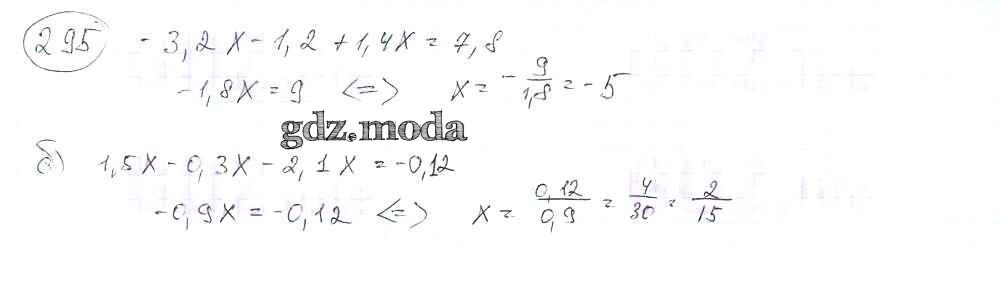 295 -3,2x-1,2+1,4x=7,8
-1,8x=9 <=> x=-9/1,8=-5
gdz.moda
б) 1,5x-0,3x-2,1x=-0,12
-0,9x=-0,12 <=> x=0,12/0,9=4/30=2/15